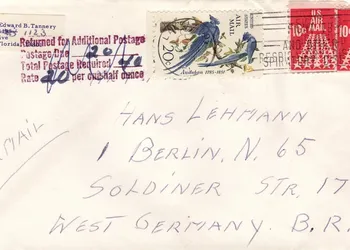 Edward B. Tannery
1123
Florida
Returned for Additional Postage
Postage Due 20
Total Postage Required 40
Rate 20 per one half ounce
20c
AIR MAIL
Audubon 1785-1851
U.S. AIR MAIL
10c
HANS LEHMANN
1 BERLIN, N. 65
SOLDINER STR. 17
WEST GERMANY. B.R.
MAIL